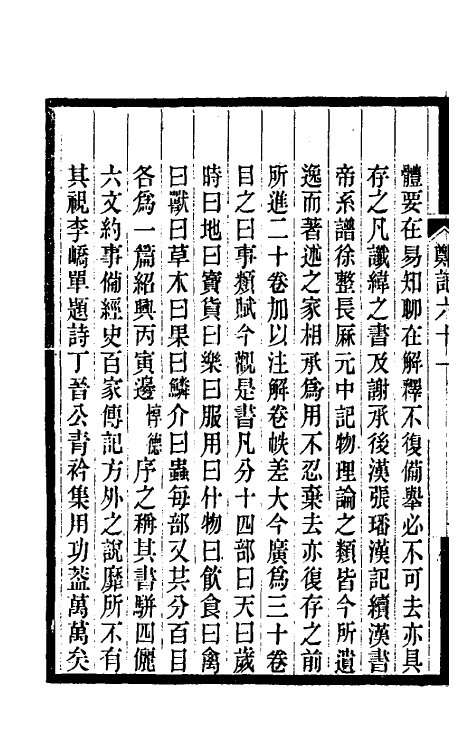 鄭記六十一
體要在易知聊在解釋不復備舉必不可去亦具
存之凡讖緯之書及謝承後漢張璠漢記續漢書
帝系譜徐整長厤元中記物理論之類皆今所遺
逸而著述之家相承爲用不忍棄去亦復存之前
所進二十卷加以注解卷帙差大今廣爲三十卷
目之曰事類賦今觀是書凡分十四部曰天曰歲
時曰地曰寶貨曰樂曰服用曰什物曰飮食曰禽
曰獸曰草木曰果曰鱗介曰蟲每部又其分百目
各爲一篇紹興丙寅邊惇德序之稱其書駢四儷
六文約事備經史百家傳記方外之說靡所不有
其視李嶠單題詩丁晉公青衿集用功葢萬萬矣